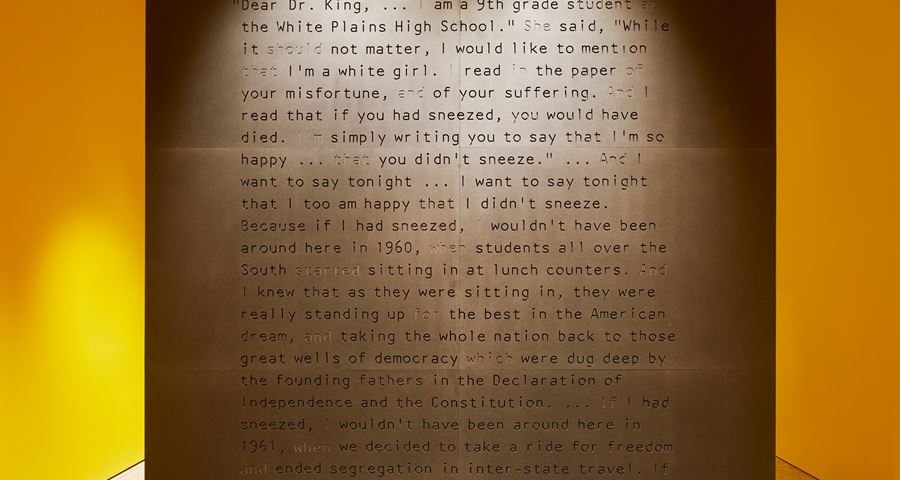 "Dear Dr. King, ... I am a 9th grade student at
the White Plains High School." She said, "While
it should not matter, I would like to mention
that I'm a white girl. I read in the paper of
your misfortune, and of your suffering. And I
read that if you had sneezed, you would have
died. I'm simply writing you to say that I'm so
happy ... that you didn't sneeze." ... And I
want to say tonight ... I want to say tonight
that I too am happy that I didn't sneeze.
Because if I had sneezed, I wouldn't have been
around here in 1960, when students all over the
South started sitting in at lunch counters. And
I knew that as they were sitting in, they were
really standing up for the best in the American
dream, and taking the whole nation back to those
great wells of democracy which were dug deep by
the founding fathers in the Declaration of
Independence and the Constitution. ... If I had
sneezed, I wouldn't have been around here in
1961, when we decided to take a ride for freedom
and ended segregation in inter-state travel. If